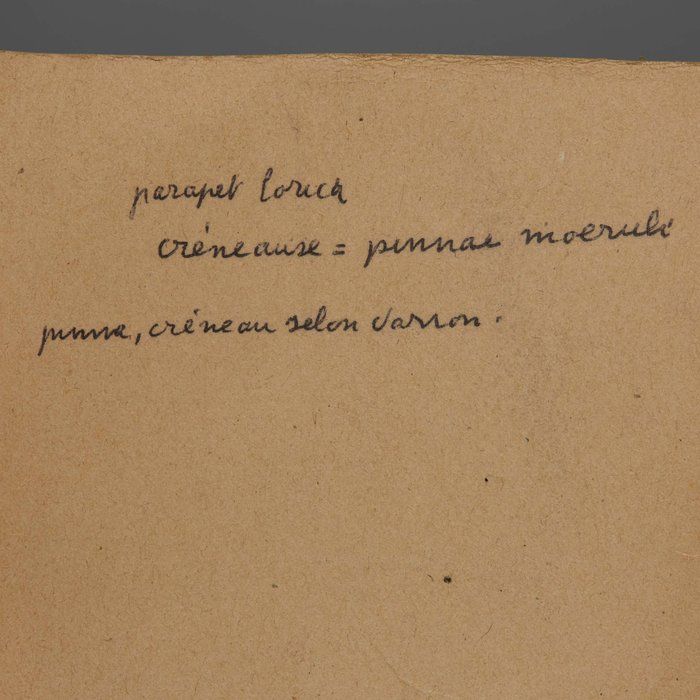 parapet lorica
créneause = pinnae moeruli
pinna, créneau selon Varron.